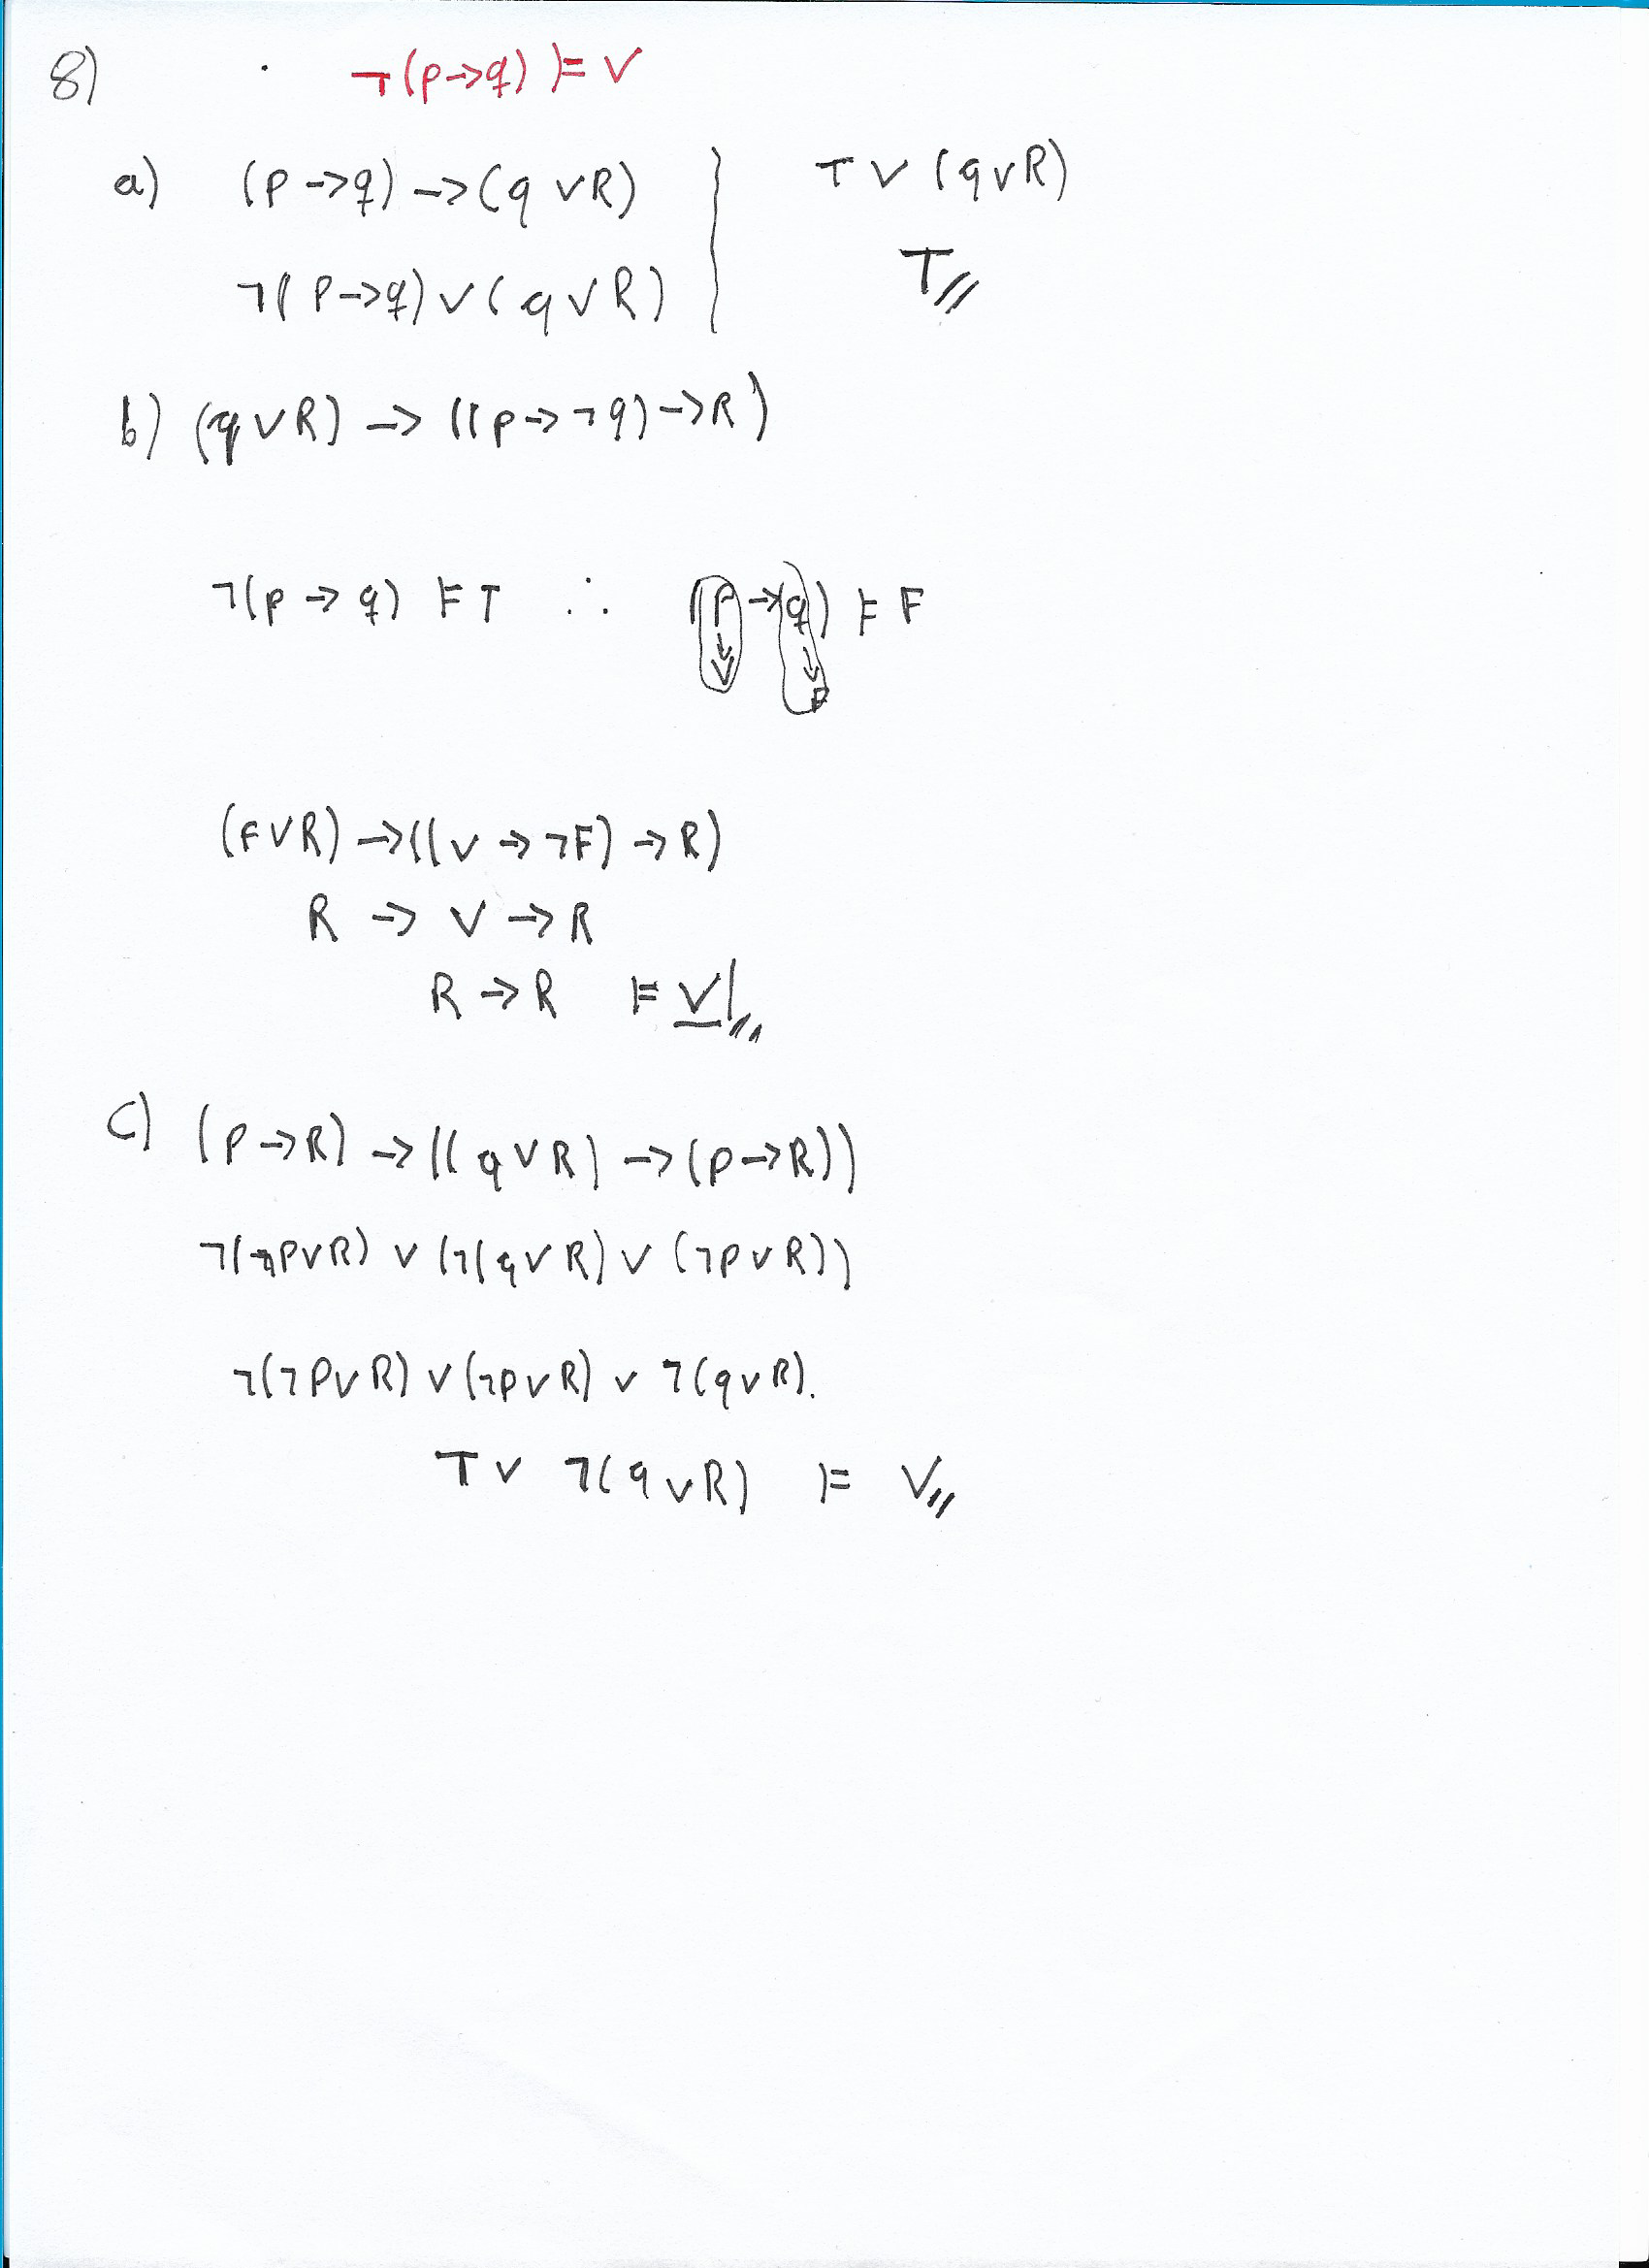 8) ¬(p→q) ⊨ V
a) (p→q)→(q∨R) } T∨(q∨R)
¬(P→q)∨(q∨R) T//
b) (q∨R)→((p→¬q)→R)
¬(p→q) ⊨ T ∴ (P→q) ⊨ F
V F
(F∨R)→((V→¬F)→R)
R → V → R
R → R ⊨ V//
c) (P→R)→((q∨R)→(p→R))
¬(¬P∨R) ∨ (¬(q∨R) ∨ (¬p∨R))
¬(¬P∨R) ∨ (¬p∨R) ∨ ¬(q∨R).
T ∨ ¬(q∨R) ⊨ V//